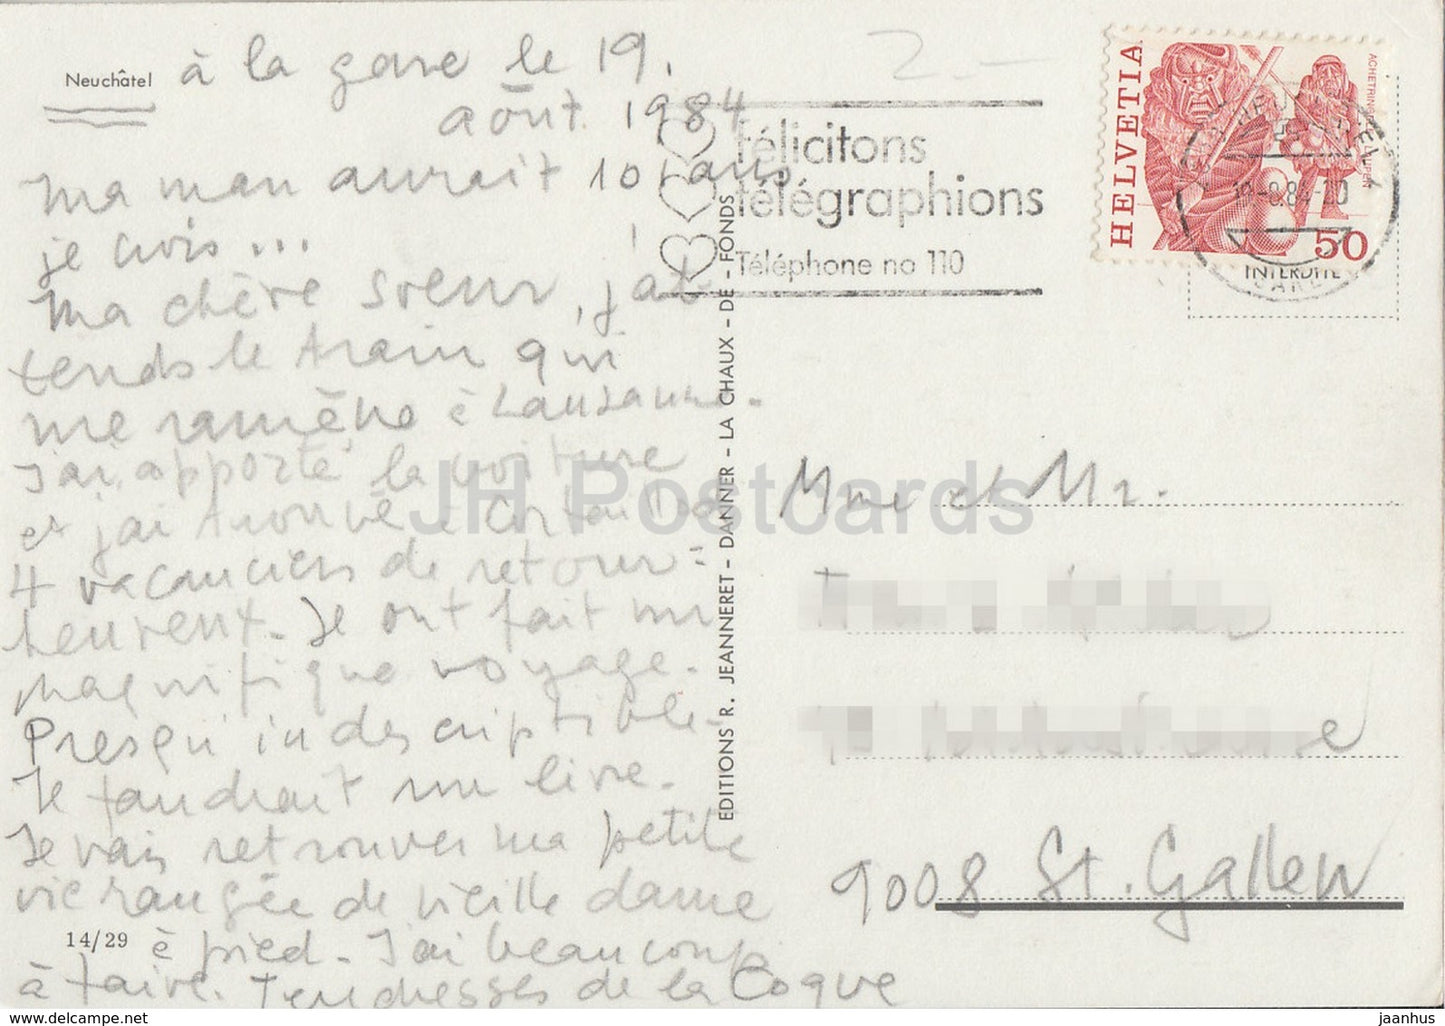 Neuchâtel
à la gare le 19.
août 1984
Maman aurait 101 ans
je crois ...
Ma chère soeur, j'at
tends le train qui
me ramène à Lausanne.
J'ai apporté la voiture
et j'ai trouvé à Cortaillod
4 vacanciers de retour =
heureux. Ils ont fait un
magnifique voyage.
Presqu'indescriptible.
Il faudrait un livre.
Je vais retrouver ma petite
vie rangée de vieille dame
à pied. J'ai beaucoup
à faire. Tendresses de la Coque
14/29
EDITIONS R. JEANNERET - DANNER - LA CHAUX - DE - FONDS
2.-
félicitons
télégraphions
Téléphone no 110
HELVETIA
50
19-8.84-20
INTERDITE
Mme et Mr.
9008 St. Gallen
JH Postcards
www.delcampe.net
jaanhus